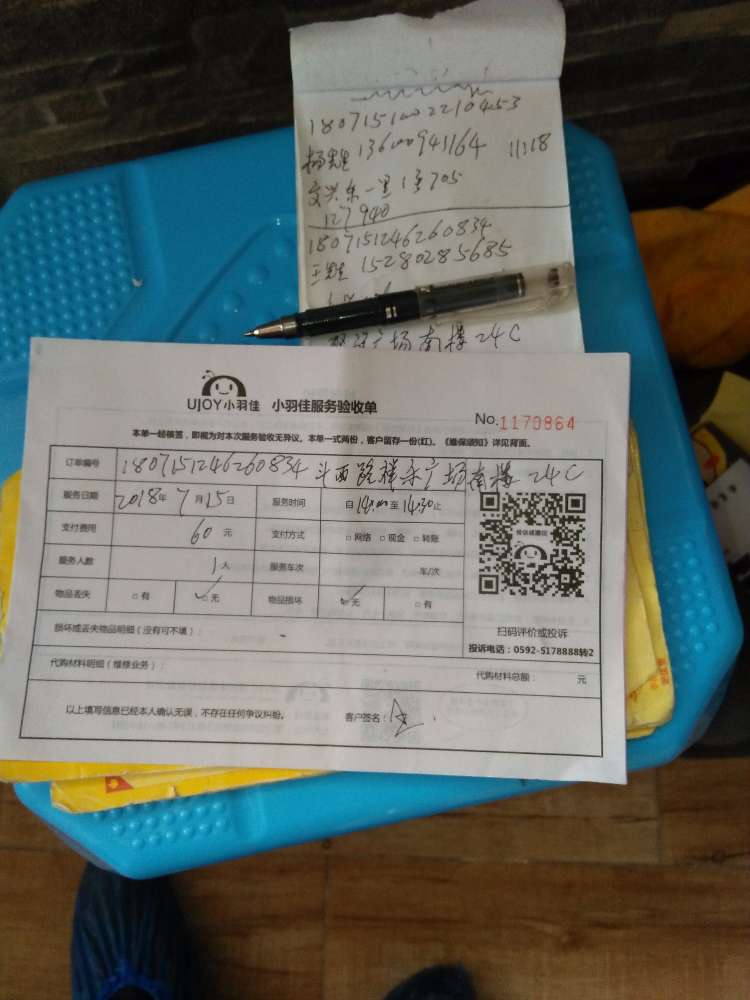 1807151002210453
杨先生 13600941164 11:18
文兴东一里1号705
127940
1807151246260834
王先生 15280285685
广场南楼24C
UJOY小羽佳 小羽佳服务验收单
No.1170864
本单一经核签，即视为对本次服务验收无异议。本单一式两份，客户留存一份(红)。《维保须知》详见背面。
订单编号 1807151246260834 斗西路祥禾广场南楼24C
服务日期 2018年7月15日 服务时间 自14:00至14:30止
支付费用 60元 支付方式 □网络 □现金 □转账
服务人数 1人 服务车次 车/次
物品丢失 □有 ✓□无 物品损坏 ✓□无 □有
投诉或建议
扫码评价或投诉
投诉电话：0592-5178888转2
损坏或丢失物品明细（没有可不填）：
代购材料明细（维修业务）： 代购材料总额： 元
以上填写信息已经本人确认无误，不存在任何争议纠纷。 客户签名：